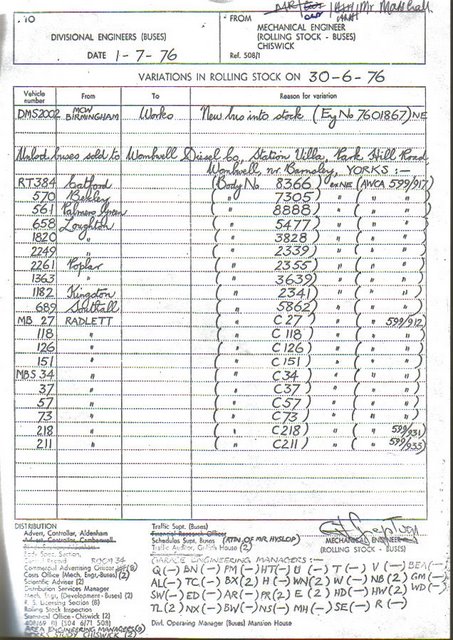 Mr Marshall
TO FROM
DIVISIONAL ENGINEERS (BUSES) MECHANICAL ENGINEER
(ROLLING STOCK - BUSES)
CHISWICK
DATE 1-7-76 Ref. 508/1
VARIATIONS IN ROLLING STOCK ON 30-6-76
Vehicle number From To Reason for variation
DMS2002 MCW BIRMINGHAM Works New bus into stock (Eng No 7601867) NE
Unlsd buses sold to Wombwell Diesel Co, Station Villa, Park Hill Road,
Wombwell, nr. Barnsley, YORKS :—
RT384 Catford (Body No 8366) ex NE (AWCA 599/917)
570 Bexley ( " 7305) " ( " " )
561 Palmers Green ( " 8888) " ( " " )
658 Loughton ( " 5477) " ( " " )
1820 " ( " 3828) " ( " " )
2249 " ( " 2339) " ( " " )
2261 Poplar ( " 2355) " ( " " )
1363 " ( " 3639) " ( " " )
1182 Kingston ( " 2341) " ( " " )
689 Southall ( " 5862) " ( " " )
MB 27 RADLETT ( " C27) " ( " 599/912)
118 " ( " C118) " ( " " )
126 " ( " C126) " ( " " )
151 " ( " C151) " ( " " )
MBS 34 " ( " C34) " ( " " )
37 " ( " C37) " ( " " )
57 " ( " C57) " ( " " )
73 " ( " C73) " ( " " )
218 " ( " C218) " ( " 599/931)
211 " ( " C211) " ( " 599/933)
DISTRIBUTION
Advert. Controller, Aldenham
Traffic Supt. (Buses)
Financial Research Officer
Schedules Supt. Buses (ATTN OF MR HYSLOP)
Traffic Auditor, Griffith House (2)
MECHANICAL ENGINEER
(ROLLING STOCK - BUSES)
ROOM 34
Commercial Advertising Officer
Costs Office (Mech. Engr.-Buses) (2)
Scientific Adviser (2)
Distribution Services Manager
Mech. Engr. (Development - Buses)
R.S. Licensing Section
Rolling Stock Inspection
Staminal Office - Chiswick (2)
AREA ENGINEERING MANAGERS
GARAGE ENGINEERING MANAGERS
Q(—) BN(—) FM(—) HT(—) U(—) T(—) V(—) BEA(—)
AL(—) TC(—) BX(2) H(—) WN(2) W(—) NB(2) GM(—)
SW(—) ED(—) AR(—) PR(2) E(2) HD(—) HW(2) WD(—)
TL(2) NX(—) BW(—) NS(—) MH(—) SE(—) R(—)
Divl. Operating Manager (Buses) Mansion House